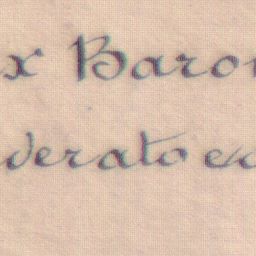 x Baro
derato e